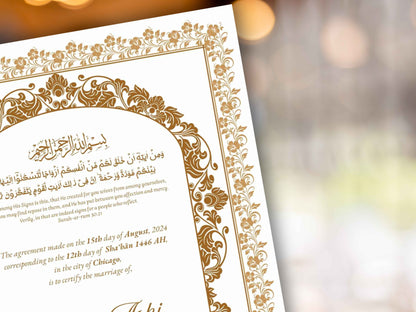 بسم الله الرحمن الرحيم
وَمِنْ آيَتِهِ أَنْ خَلَقَ لَكُمْ مِّنْ أَنْفُسِكُمْ أَزْوَاجًا لِّتَسْكُنُوا إِلَيْهَا
بَيْنَكُمْ مَّوَدَّةً وَّرَحْمَةً إِنَّ فِي ذَلِكَ لَآيَتٍ لِّقَوْمٍ يَّتَفَكَّرُونَ
Among His Signs is this, that He created for you wives from among yourselves,
you may find repose in them, and He has put between you affection and mercy.
Verily, in that are indeed signs for a people who reflect.
Surah-ar-Rum 30:21
The agreement made on the 15th day of August, 2024
corresponding to the 12th day of Sha'bān 1446 AH,
in the city of Chicago,
is to certify the marriage of,